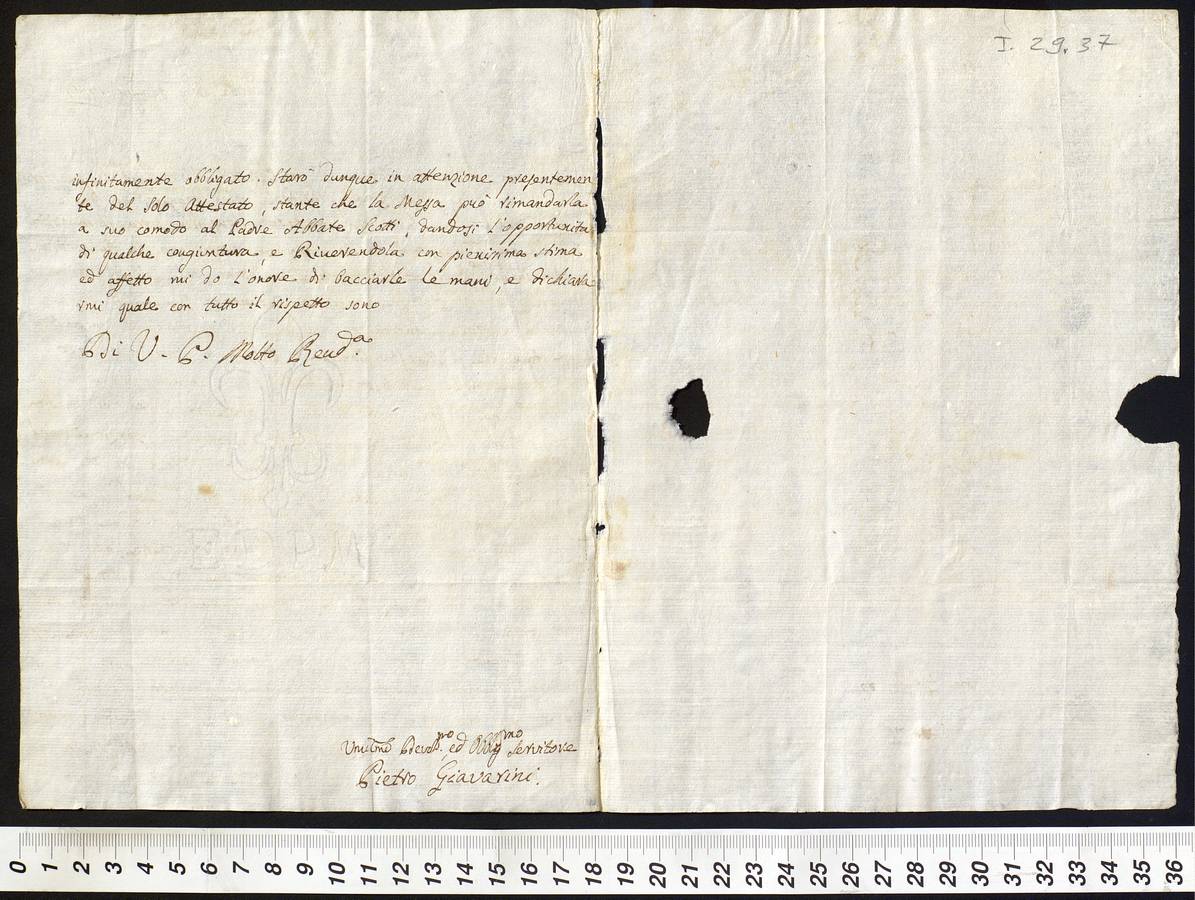 infinitamente obbligato. Starò dunque in attenzione presentemen
te del solo Attestato, stante che la Messa può rimandarla
a suo comodo al Padre Abbate Scotti, dandosi l'opportunità
di qualche congiuntura, e Riverendola con pienissima stima
ed affetto mi do l'onore di bacciarle le mani, e dichiara
rmi quale con tutto il rispetto sono
Di V. P. Molto Revda.
Umilmo Devmo. ed Obbligmo Servitore
Pietro Giavarini.
I. 29. 37
0 1 2 3 4 5 6 7 8 9 10 11 12 13 14 15 16 17 18 19 20 21 22 23 24 25 26 27 28 29 30 31 32 33 34 35 36